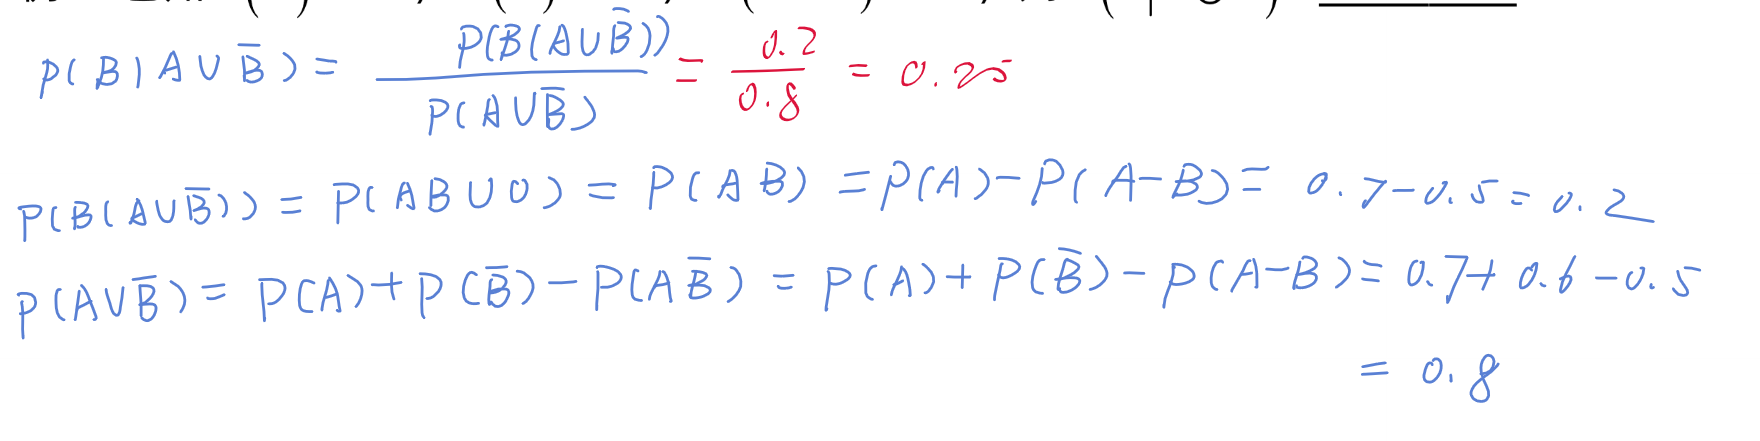 P(B|A∪B̄) = P(B(A∪B̄)) / P(A∪B̄) = 0.2 / 0.8 = 0.25
P(B(A∪B̄)) = P(AB∪0) = P(AB) = P(A)-P(A-B) = 0.7-0.5 = 0.2
P(A∪B̄) = P(A)+P(B̄)-P(AB̄) = P(A)+P(B̄)-P(A-B) = 0.7+0.6-0.5
= 0.8